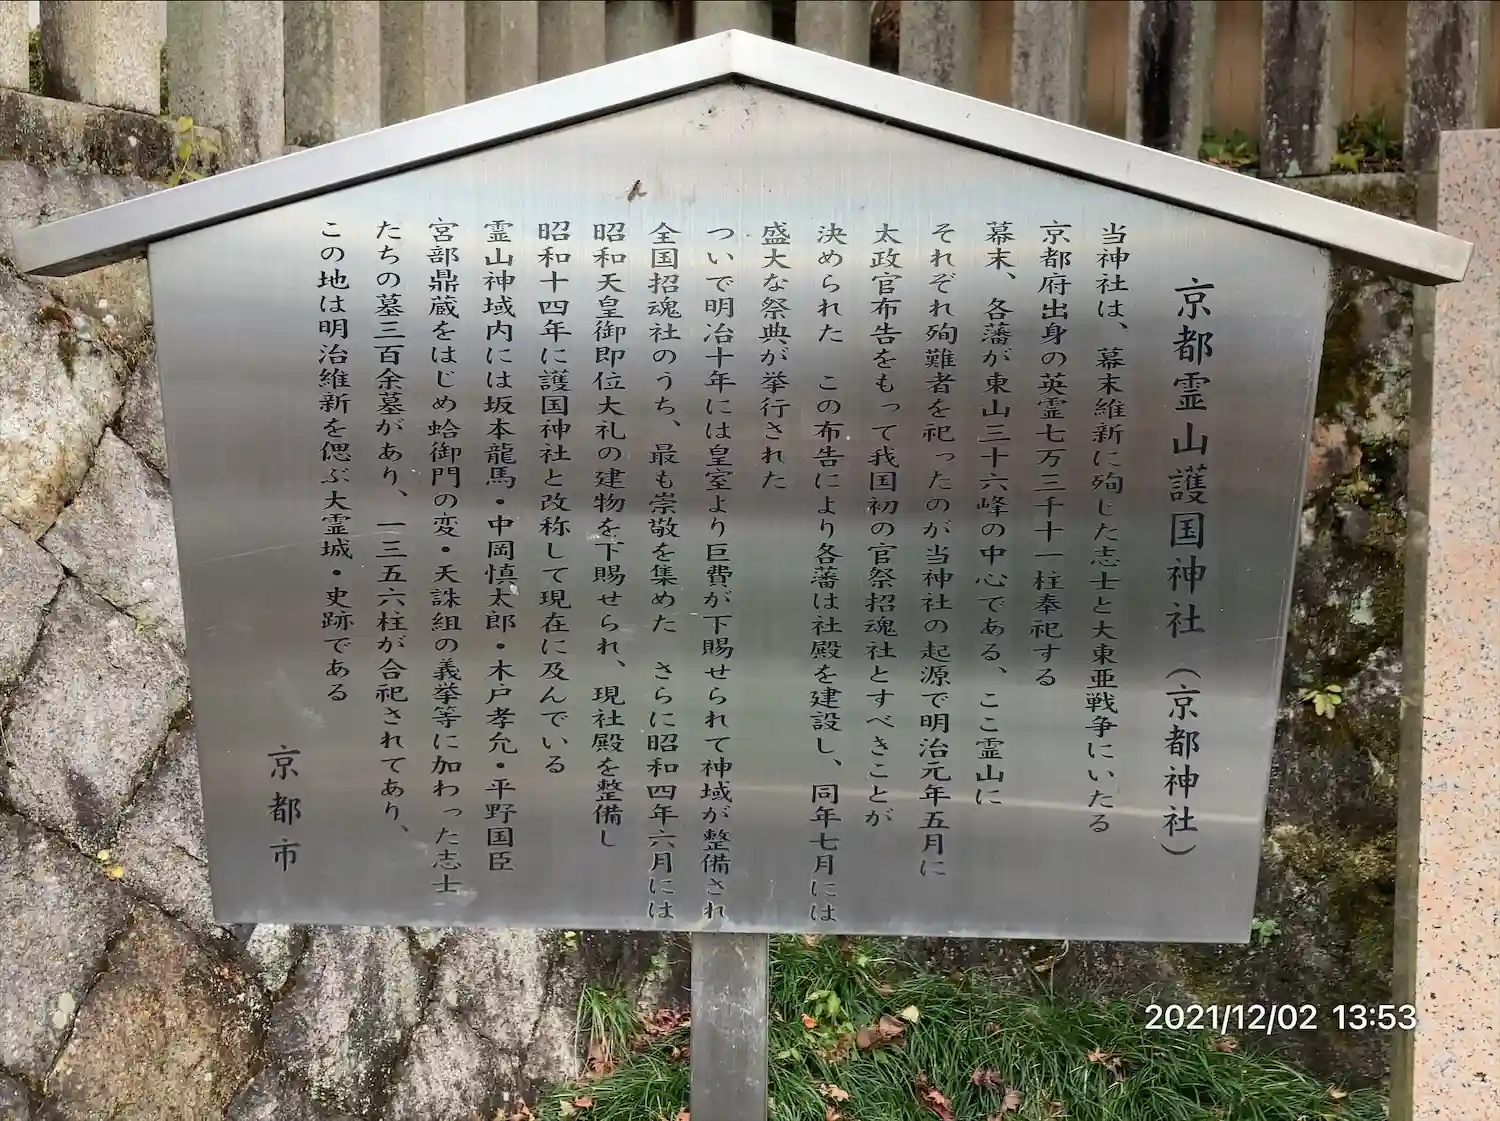 京都霊山護国神社（京都神社）
当神社は、幕末維新に殉じた志士と大東亜戦争にいたる
京都府出身の英霊七万三千十一柱奉祀する
幕末、各藩が東山三十六峰の中心である、ここ霊山に
それぞれ殉難者を祀ったのが当神社の起源で明治元年五月に
太政官布告をもって我国初の官祭招魂社とすべきことが
決められた　この布告により各藩は社殿を建設し、同年七月には
盛大な祭典が挙行された
ついで明治十年には皇室より巨費が下賜せられて神域が整備され
全国招魂社のうち、最も崇敬を集めた　さらに昭和四年六月には
昭和天皇御即位大礼の建物を下賜せられ、現社殿を整備し
昭和十四年に護国神社と改称して現在に及んでいる
霊山神域内には坂本龍馬・中岡慎太郎・木戸孝允・平野国臣
宮部鼎蔵をはじめ蛤御門の変・天誅組の義挙等に加わった志士
たちの墓三百余墓があり、一三五六柱が合祀されてあり、
この地は明治維新を偲ぶ大霊城・史跡である
京都市
2021/12/02 13:53